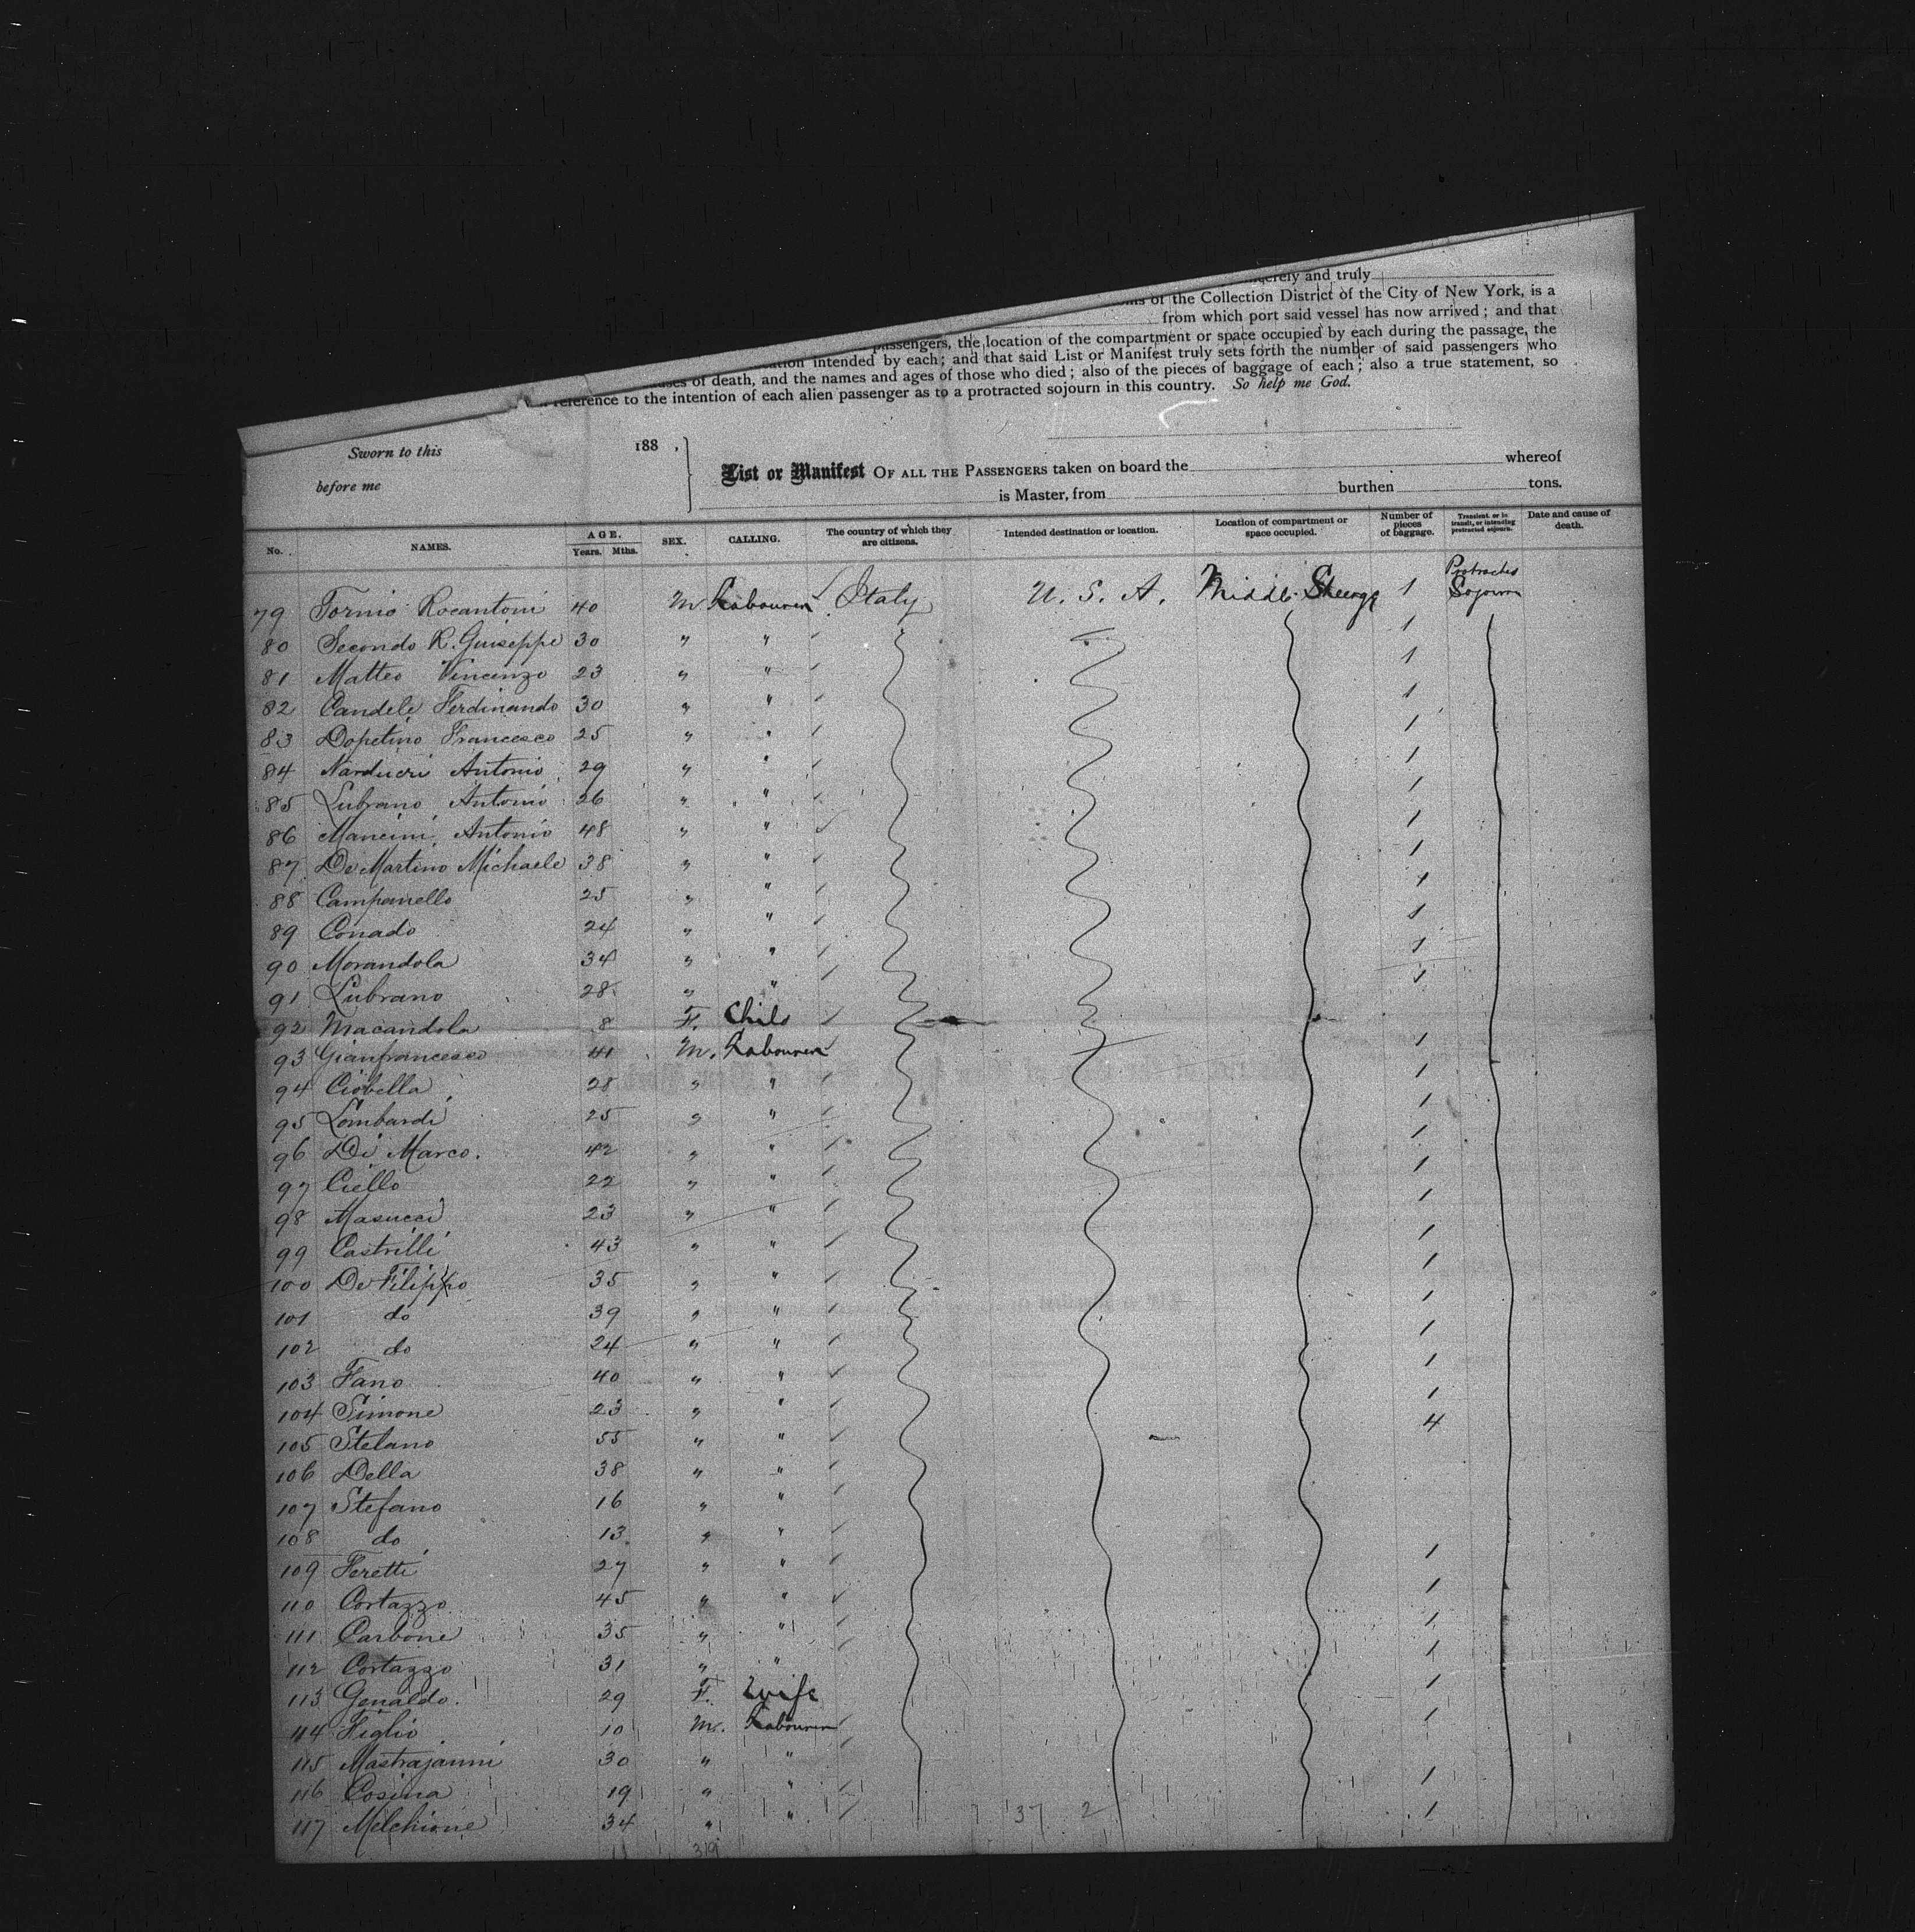 and truly
of the Collection District of the City of New York, is a
from which port said vessel has now arrived ; and that
passengers, the location of the compartment or space occupied by each during the passage, the
intended by each; and that said List or Manifest truly sets forth the number of said passengers who
of death, and the names and ages of those who died ; also of the pieces of baggage of each ; also a true statement, so
reference to the intention of each alien passenger as to a protracted sojourn in this country. So help me God.
Sworn to this 188 ,
before me
List or Manifest OF ALL THE PASSENGERS taken on board the whereof
is Master, from burthen tons.
No. NAMES. AGE. Years. Mths. SEX. CALLING. The country of which they are citizens. Intended destination or location. Location of compartment or space occupied. Number of pieces of baggage. Transient, or in transit, or intending protracted sojourn. Date and cause of death.
79 Tornio Rocantoni 40 M Labourer Italy U. S. A. Middle Steerage 1 Protracted Sojourn
80 Secondo R. Guiseppe 30 " " 1
81 Matteo Vincenzo 23 " " 1
82 Candele Ferdinando 30 " " 1
83 Dopetino Francesco 25 " " 1
84 Narducci Antonio 29 " " 1
85 Lubrano Antonio 26 " " 1
86 Mancini Antonio 48 " " 1
87 De Martino Michaele 38 " " 1
88 Campanello 25 " " 1
89 Conado 24 " " 1
90 Morandola 34 " " 1
91 Lubrano 28 " " 1
92 Macandola 8 F. Child
93 Gianfrancesco 41 M. Labourer 1
94 Ciobella 28 " " 1
95 Lombardi 25 " " 1
96 Di Marco. 42 " " 1
97 Ciello 22 " " 1
98 Masucci 23 " " 1
99 Castrilli 43 " " 1
100 De Filippo 35 " " 1
101 do 39 " " 1
102 do 24 " " 1
103 Fano 40 " " 1
104 Simone 23 " " 1
105 Stelano 55 " " 4
106 Della 38 " "
107 Stefano 16 " "
108 do 13 " "
109 Feretti 27 " " 1
110 Cortazzo 45 " " 1
111 Carbone 35 " " 1
112 Cortazzo 31 " " 1
113 Genaldo. 29 F. Wife 1
114 Figlio 10 M. Labourer 1
115 Mastrajanni 30 " "
116 Cosina 19 " " 1
117 Melchione 34 " " 1
37 2
11 39